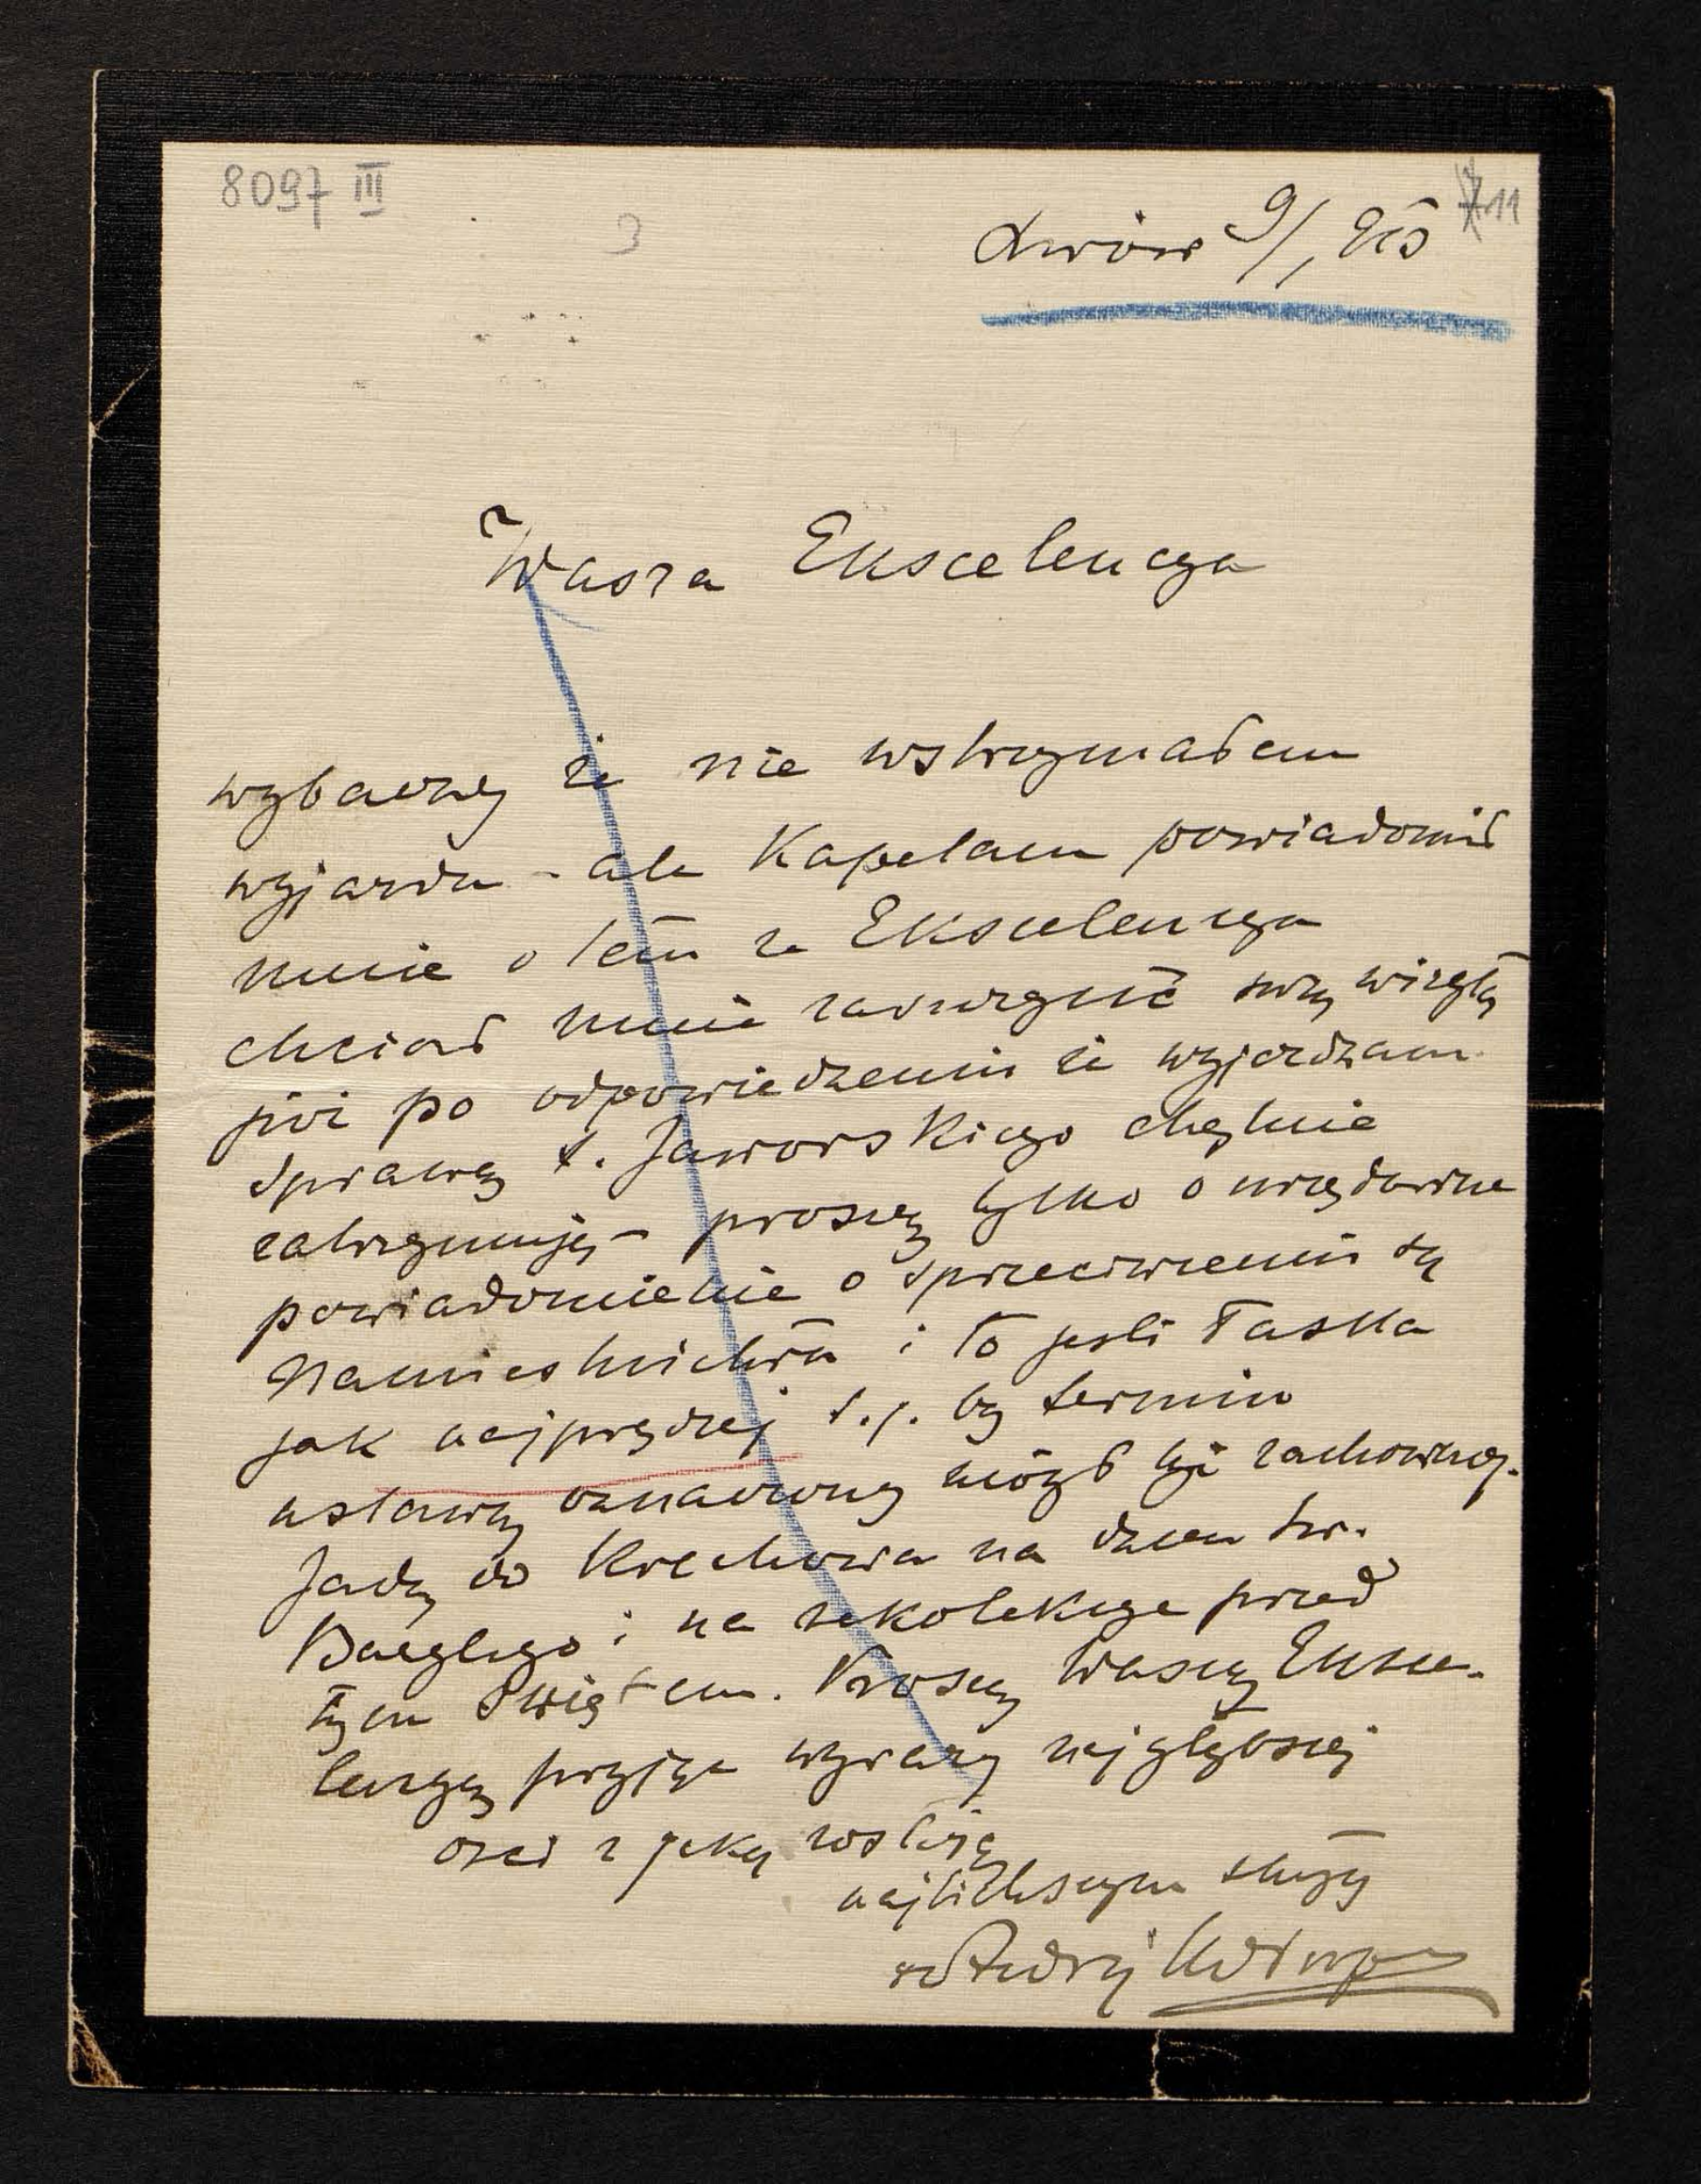 8097 III
3
11
Lwów 9/1 905
Wasza Ekscelencya
wybaczy że nie wstrzymałem
wyjazdu - ale Kapelan powiadomił
mnie o tem że Ekscelencya
chciał mnie zaszczycić swą wizytą
już po odpowiedzeniu że wyjeżdżam.
Sprawę X. Jaworskiego chętnie
zatrzymuję - proszę tylko o urzędowne
powiadomienie o sprzeciwieniu się
Namiestnictwa i to jeśli łaska
jak najprędzej t.j. by termin
ustawą oznaczony mógł być zachowany.
Jadę do Krechowa na dzień św.
Bazylego i na rekolekcye przed
tym świętem. Proszę Waszą Eksce-
lencyę przyjąć wyrazy najgłębszej
czci z jaką zostaję
najlichszym sługą
+ Andrzej